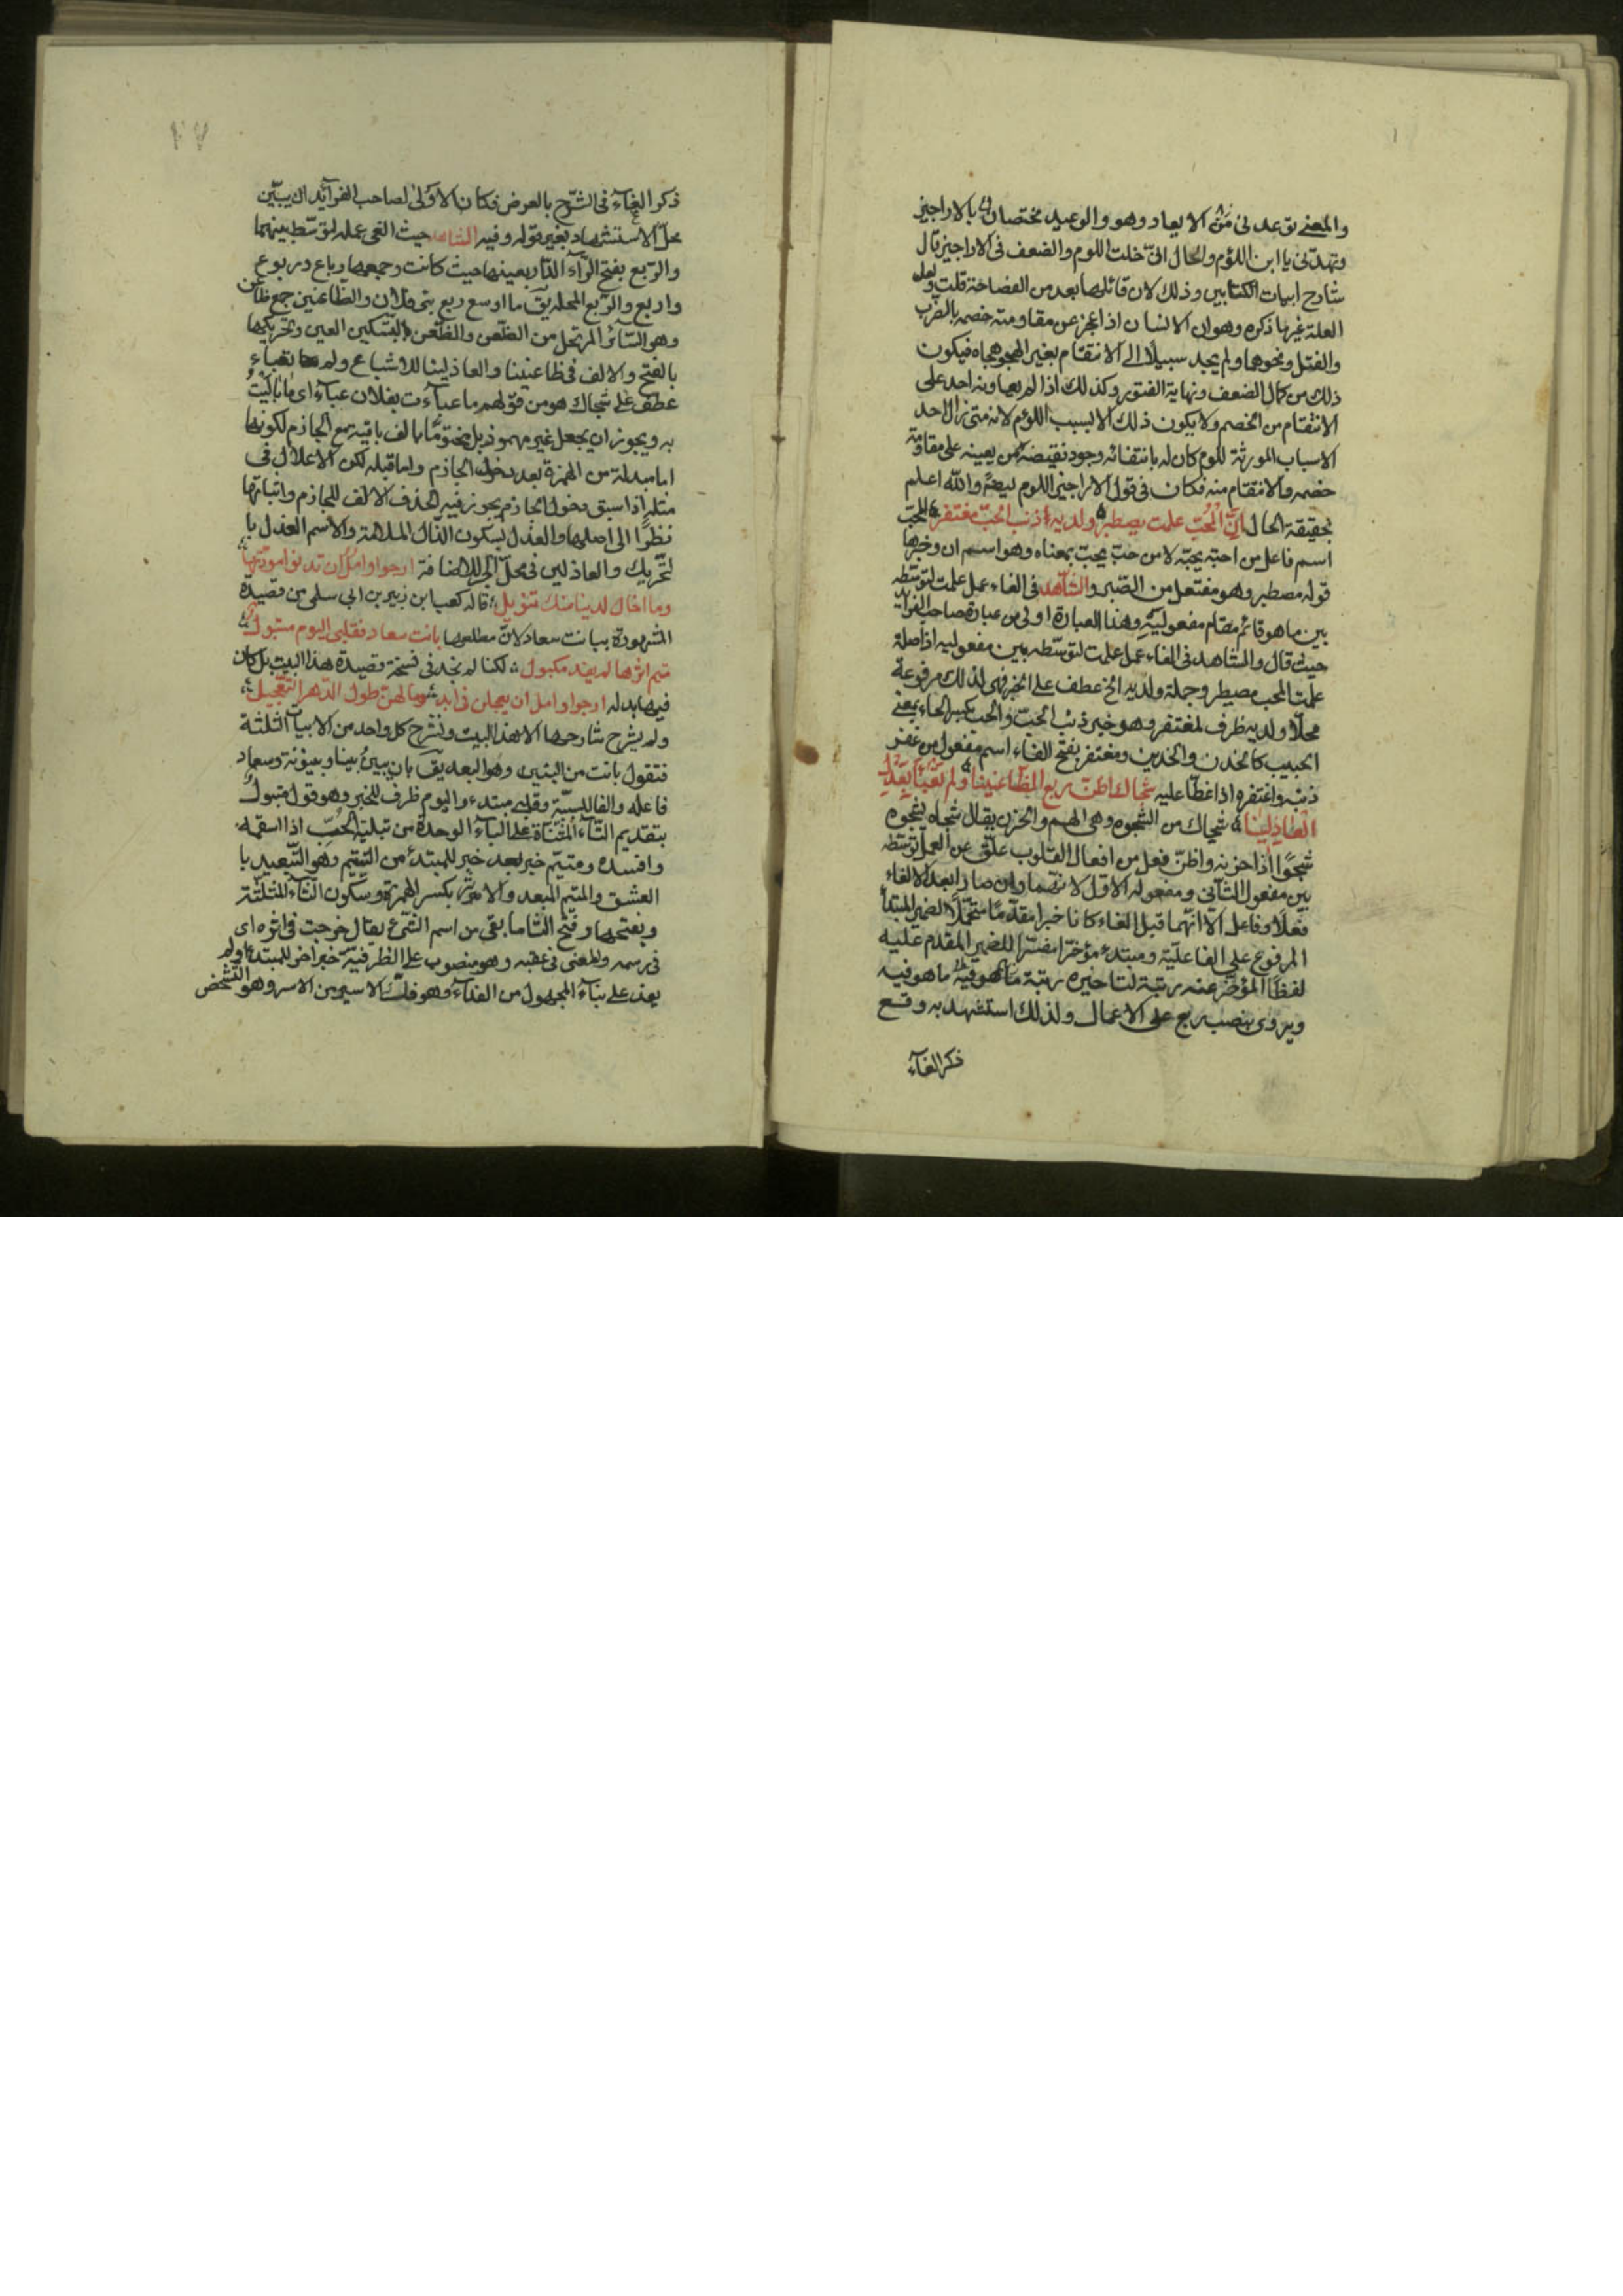 والمعنى توعدني من الايعاد وهو والوعيد مختصان بالاراجيز
وتهدّني يا ابن اللؤم والحال انّي خلت اللوم والضعف في الاراجيز قال
شارح ابيات الكتابين وذلك لان قائلها بعد من الفصاحة قلت ولعل
العلة غيرها ذكره وهو ان الانسان اذا عجز عن مقاومته خصمه بالضرب
والقتل ونحوهما ولم يجد سبيلًا الى الانتقام بغير الهجو هجاه فيكون
ذلك من كمال الضعف ونهاية الفتور وكذلك اذا لم يعاونه احد على
الانتقام من الخصم ولا يكون ذلك الا بسبب اللؤم لانه متى زال احد
الاسباب المورثة للوم كان له بانتفائه وجود نقيضه من يعينه على مقاومة
خصمه والانتقام منه فكان في قول الاراجيز اللوم ايضًا والله اعلم
بحقيقة الحال انّ المُحبّ علمت مصطبر ولديه ذنب الحبّ مغتفر المحبّ
اسم فاعل من احبّه يحبّه لا من حبّ يحبّ بمعناه وهو اسم ان وخبرها
قوله مصطبر وهو مفتعل من الصّبر والشّاهد في الغاء عمل علمت لتوسّطه
بين ما هو قائم مقام مفعوليه وهذا العبارة اولى من عبارة صاحب الفرائد
حيث قال والشاهد في الغاء عمل علمت لتوسّطه بين مفعوليه اذ اصله
علمت المحب مصطبر وجملة ولديه الخ عطف على الخبر فهي لذلك مرفوعة
محلًّا ولديه ظرف لمغتفر وهو خبر ذنب الحبّ والحب بكسر الحاء بمعنى
الحبيب كالخدن والخدين ومغتفر بفتح الفاء اسم مفعول من غفر
ذنبه واغتفره اذا غطّا عليه شجاك اظنّ ربع الظّاعنينا ولم تعبأ بعذل
العاذلينا شجاك من الشجوه وهي الهم والحزن يقال شجاه يشجوه
شجوًا اذا حزنه واظنّ فعل من افعال القلوب علّق عن العمل لتوسّطه
بين مفعول الثاني ومفعوله الاوّل لانهما وان صارا بعد الالغاء
فعلًا وفاعلًا الّا انّهما قبل الغاء كانا خبرا مقدّمًا متحمّلًا لضمير المبتدأ
المرفوع على الفاعليّة ومبتدء مؤخرًا مفسّرا للضمير المقدم عليه
لفظًا المؤخر عنه رتبة لتاخيره رتبة ما هو فيه
ويروى بنصب ربع على الاعمال ولذلك استشهد به وقع
ذكر الغآء
٢٧
ذكر الغآء في الشّرح بالعرض فكان الاولى لصاحب الفرآئد ان يبيّن
محلّ الاستشهاد بغير قوله وفيه الشاهد حيث الغى عمله لتوسّطه بينهما
والرّبع بفتح الرّآء الدّار بعينها حيث كانت وجمعها رباع وربوع
واربع والرّبع المحلة يق ما اوسع ربع بنى فلان والظّاعنين جمع ظاعن
وهو السّائر المرتحل من الظّعن والظّعن بتسكين العين وتحريكها
بالفتح والالف في ظاعنينا والعاذلينا للاشباع ولم تعبأ
عطف على شجاك هو من قولهم ما عبأت بفلان عبآء اى ما باليت
به ويجوز ان يجعل غير مهموز بل مختومًا بالف باقية مع الجازم لكونها
اما مبدلة من الهمزة بعد دخول الجازم واما قبله لكن الاعلال في
مثله اذا سبق دخول الجازم يجوز فيه الحذف الالف للجازم واثباتها
نظرًا الى اصلها والعذل بسكون الذّال الملامة والاسم العذل با
لتّحريك والعاذلين في محلّ الجر للاضافة ارجو وامل ان تدنو مودّتها
وما اخال لدينا منك تنويل قاله كعب ابن زهير بن ابي سلمى من قصيدة
المشهورة ببانت سعاد لانّ مطلعها بانت سعاد فقلبى اليوم متبول
متيم اثرها لم يفد مكبول لكنا لم نجد في نسخة قصيدة هذا البيت بل كان
فيها بدله ارجو وامل ان يعجلن في ابد وما لهن طول الدّهر التعجيل
ولم يشرح شارحوها الا هذا البيت ونشرح كل واحد من الابيات الثلثة
فنقول بانت من البين وهو البعد يق بان يبين بينا وبينونة وسعاد
فاعله والفا للسببيّة وقلبي مبتدء واليوم ظرف للخبر وهو قول متبول
بتقديم التّاء المثنّاة على البآء الوحدة من تبلية الحُبّ اذا اسقمه
وافسده ومتيّم خبر بعد خبر للمبتدء من التّيتم وهو التّبعيد با
العشق والمتيم المبعد والاثر بكسر الهمزة وسكون الثّآء المثلثة
وبفتحهما وفتح الثّا ما بقى من اسم الشّئ يقال خرجت في اثره اى
في رسمه والمعنى في عقبه وهو منصوب على الظرفيّة خبر اخر للمبتدء ولم
يفد على بنآء المجهول من الفدآء وهو فكّ الاسير من الاسر وهو الشخص